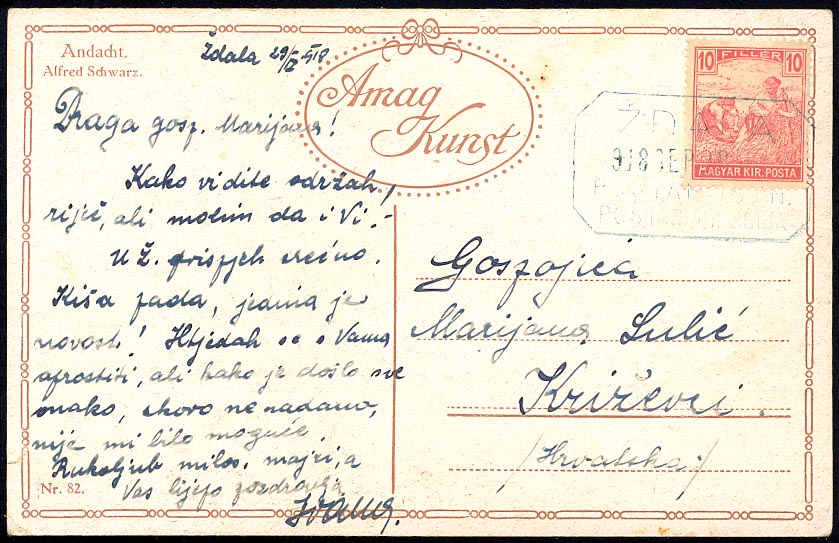 Andacht.
Alfred Schwarz.
Ždala 29/ 918
Amag
Kunst
10 FILLÉR 10
MAGYAR KIR. POSTA
ŽDALA
918 SEP
Draga gosp. Marijana!
Kako vidite održah
riječ, ali molim da i Vi.-
U Ž. prispjeh srećno.
Kiša pada, jedina je
novost! Htjedah se s Vama
oprostiti, ali kako je došlo sve
onako, skoro ne nadano,
nije mi bilo moguće.
Rukoljub milos. majci, a
Vas lijepo pozdravlja
Ivana.
Gospojica
Marijana Lulić
Križevci.
/Hrvatska/
Nr. 82.